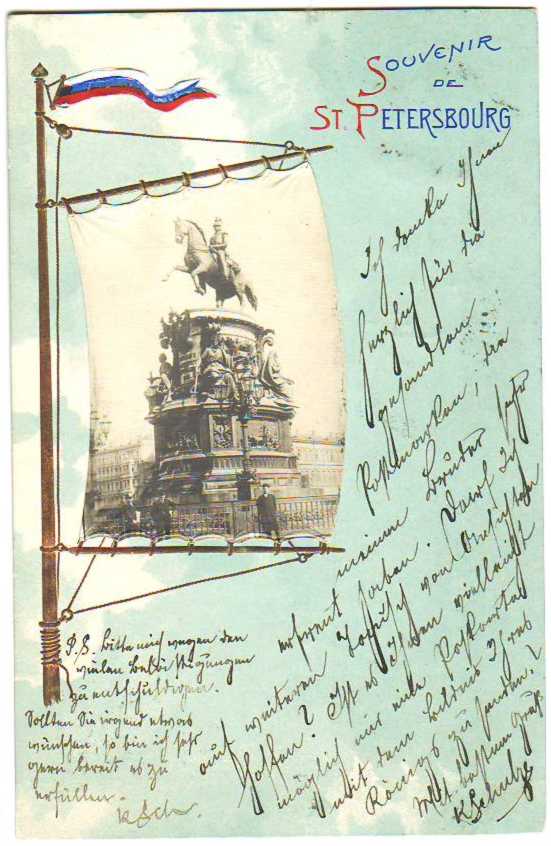 SOUVENIR
DE
ST. PETERSBOURG
Ich danke Ihnen
herzlich für die
gesandten
Postmarken, die
meinem Bruder sehr
erfreut haben. Darf ich
auf weiteren von Ansichten
hoffen? Ist es Ihnen vielleicht
möglich mir eine Postkarte
mit dem Bildnis Ihres
Königs zu senden?
Mit bestem Gruß
K. Schulz
P.S. Bitte mich wegen den
vielen
zu entschuldigen.
Sollten Sie irgend etwas
wünschen, so bin ich sehr
gern bereit es zu
erfüllen.
K Sch.